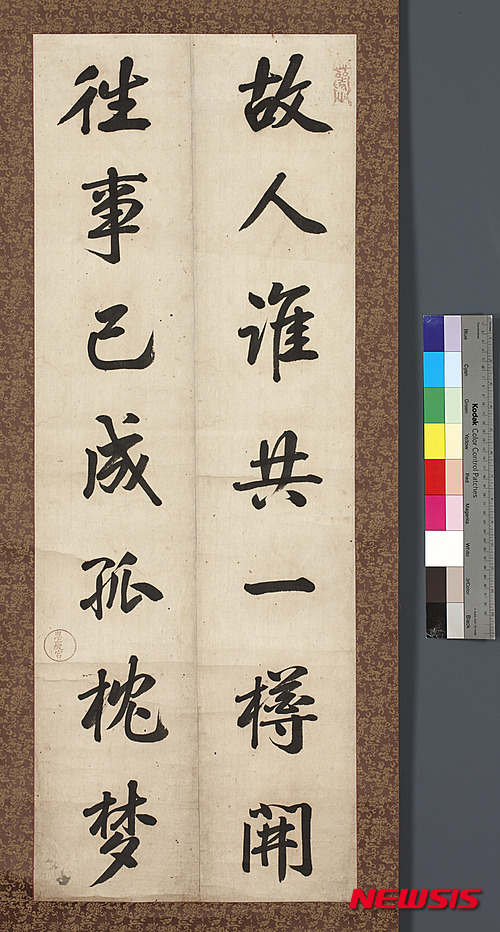 故人誰共一樽開
徃事已成孤枕梦
Kodak Color Control Patches
Blue
Cyan
Green
Yellow
Red
Magenta
White
3/Color
Black
NEWSIS